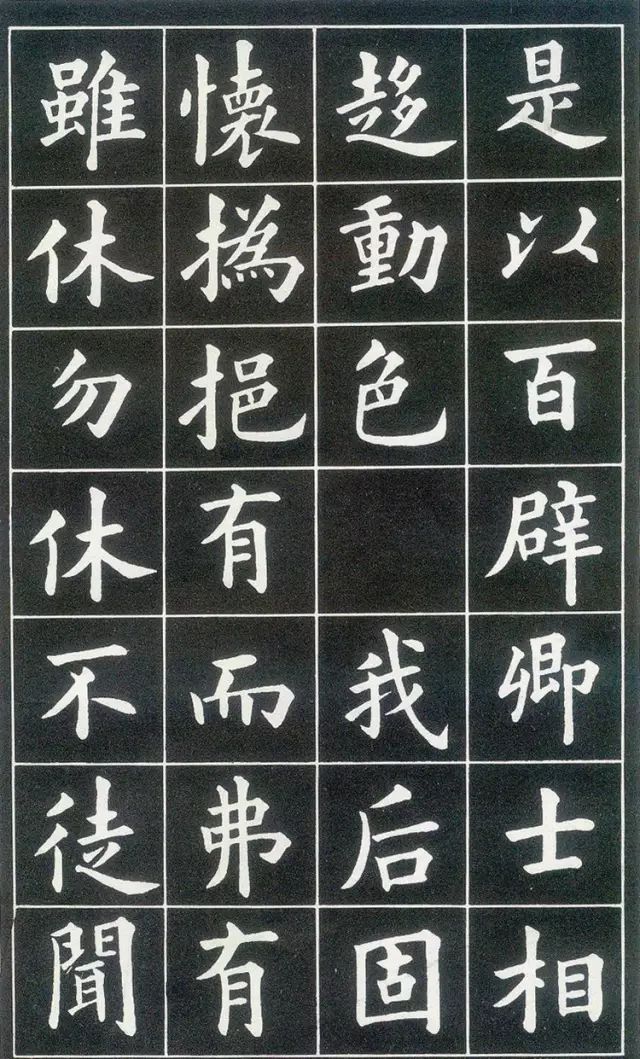 是以百辟卿士相
趍動色 我后固
懷撝挹有而弗有
雖休勿休不徒聞